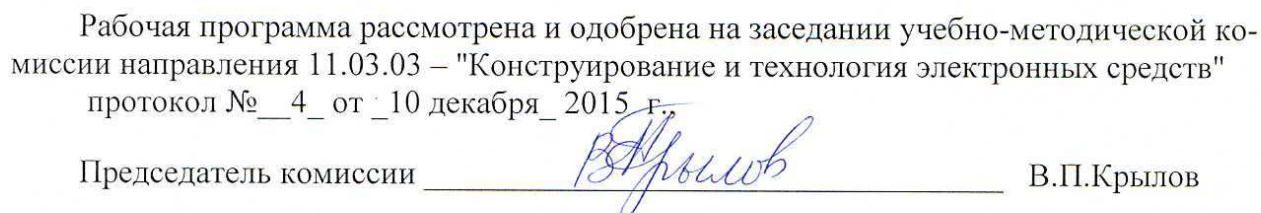 Рабочая программа рассмотрена и одобрена на заседании учебно-методической ко-
миссии направления 11.03.03 – "Конструирование и технология электронных средств"
протокол №__4_ от _10 декабря_ 2015_г.,
Председатель комиссии ______________________ ВПКрылов В.П.Крылов